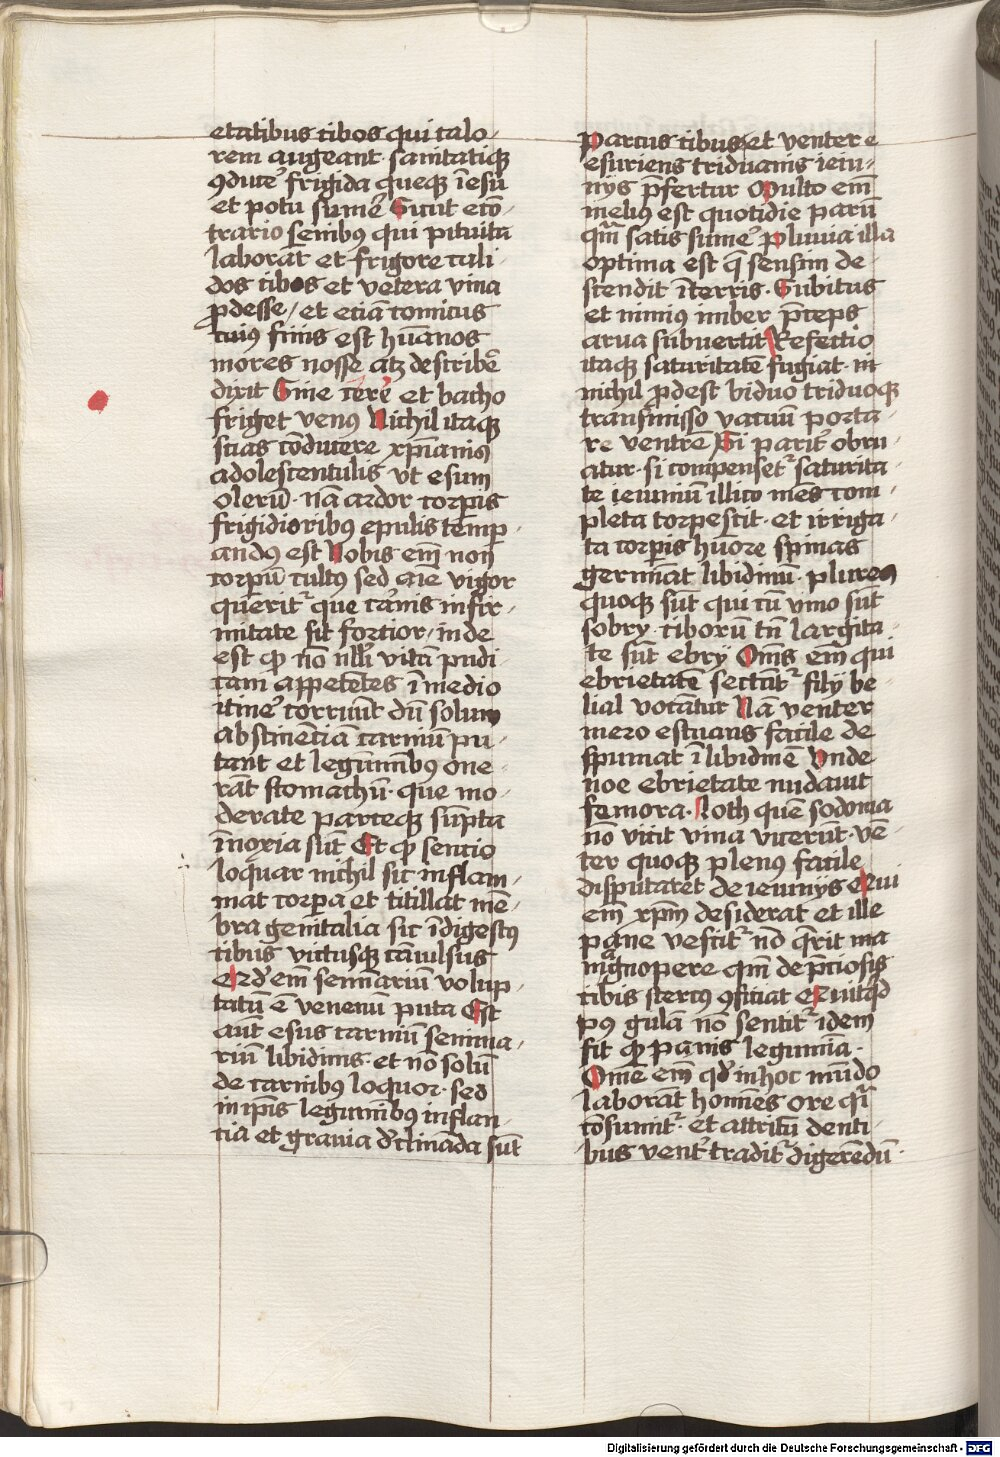 etatibus cibos qui calo-
rem augeant sanitatiqꝫ
ꝯducē frigida queqꝫ ī esu
et potu sumē Sicut ecō-
trario senibꝰ qui pituita
laborāt et frigore cali-
dos cibos et vetera vina
ꝓdesse / et etiā comicus
cuiꝰ finis est hūanos
mores nosse atqꝫ describē
dixit Sine cerē et bacho
friget venꝰ Nichil itaqꝫ
scias cōducere xp̄ianis
adolescentulis vt esum
olerū · nā ardor corpis
frigidioribꝰ epulis temp-
andꝰ est Nobis em̄ non
corpū cultꝰ sed aīe vigor
querit᷑ que carnis infir-
mitate fit fortior / inde
est ꝙ nō nlli vitā pudi
cam appetētes ī medio
itinē corruūt dū solum
abstinēciā carniū pu-
tant et leguminibꝰ one-
rāt stomachū · que mo-
derate parceqꝫ sūpta
īnoxia sūt Et ꝙ sencio
loquar nichil sic inflam-
mat corpa et titillat mē-
bra genitalia sic īdigestꝰ
cibus victusqꝫ cōuulsus
em̄ seminariū volup-
tatū ē venenū puta Est
aūt esus carniū semina-
riū libidinis · et nō solū
de carnibꝰ loquor · sed
in ip̄is leguminibꝰ inflan-
cia et grauia dʼclināda sūt
Parcus cibus et venter e
esuriens triduanis ieiu-
nijs p̄fertur Multo em̄
melius est quotidie parū
qm̄ satis sumē Pluuia illa
optima est q̄ sensim de-
scendit ī terris · Subitus
et nimius imber p̄ceps
arua subuertit Refectio
itaqꝫ saturitatē fugiat · in
nichil ꝓdest biduo triduoqꝫ
transmisso vacuū porta-
re ventrē Si parit᷑ obru-
atur · si compenset᷑ saturita-
te ieiuniū illico mēs com-
pleta torpescit · et irriga-
ta corpis hūore spinas
germīat libidinū · plures
quoqꝫ sūt qui cū vino sūt
sobrij · ciborū tn̄ largita-
te sūt ebrij Oms em̄ qui
ebrietatē sectāt᷑ filij be-
lial vocātur Nā venter
mero estuans facile de-
spumat ī libidinē Vnde
noe ebrietate nudauit
femora · Loth quē sodoma
nō vicit vina vicerūt · vē-
ter quoqꝫ plenus facile
disputaret de ieiunijs Qui
em̄ xpm̄ desiderat et ille
pane vescit᷑ nō q̄rit ma-
gnopere qm̄ de p̄ciosis
cibis stercꝰ ꝯficiat Quitqd
pꝰ gulā nō sentit᷑ idem
fit ꝙ panis legumīa ·
Omē em̄ qd̓ in hoc mūdo
laborāt homies ore
cōsumit᷑ · et attritū denti-
bus vent᷑ tradit᷑ digerēdū ·
Digitalisierung gefördert durch die Deutsche Forschungsgemeinschaft - DFG